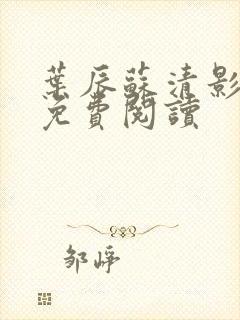 葉辰蘇清影
免費閱讀
邹峥